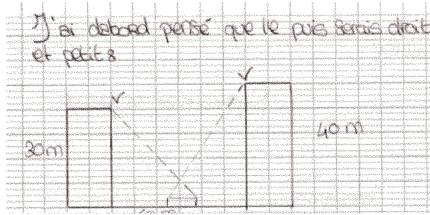 J'ai dabord pensé que le puis serais droit
et petit :
30m
40m